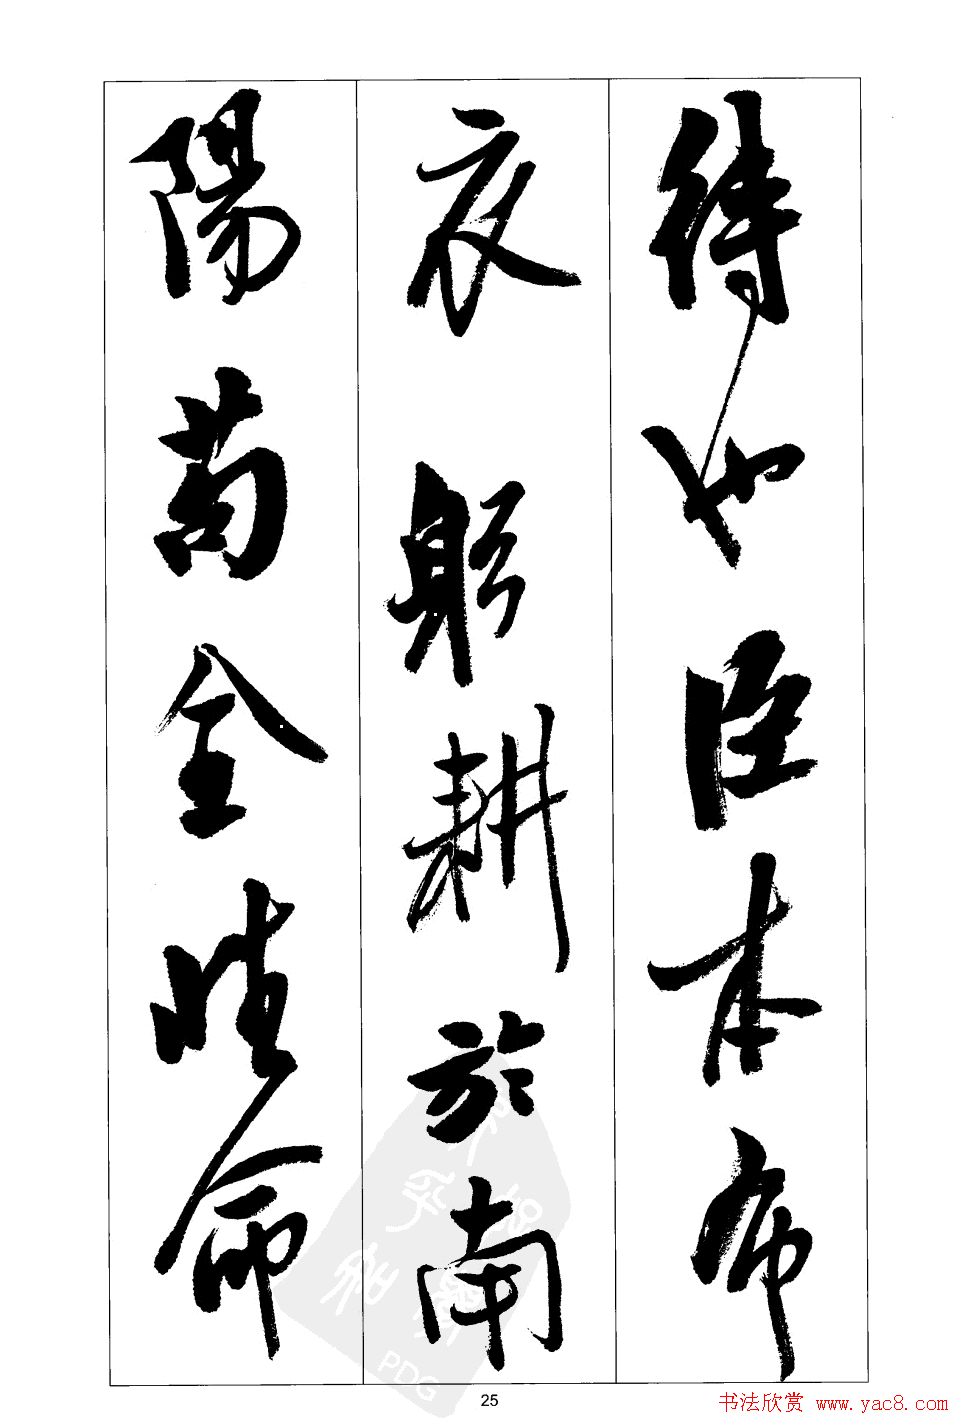 待也臣本布
衣躬耕於南
陽苟全性命
25
书法欣赏 www.yac8.com
PDG